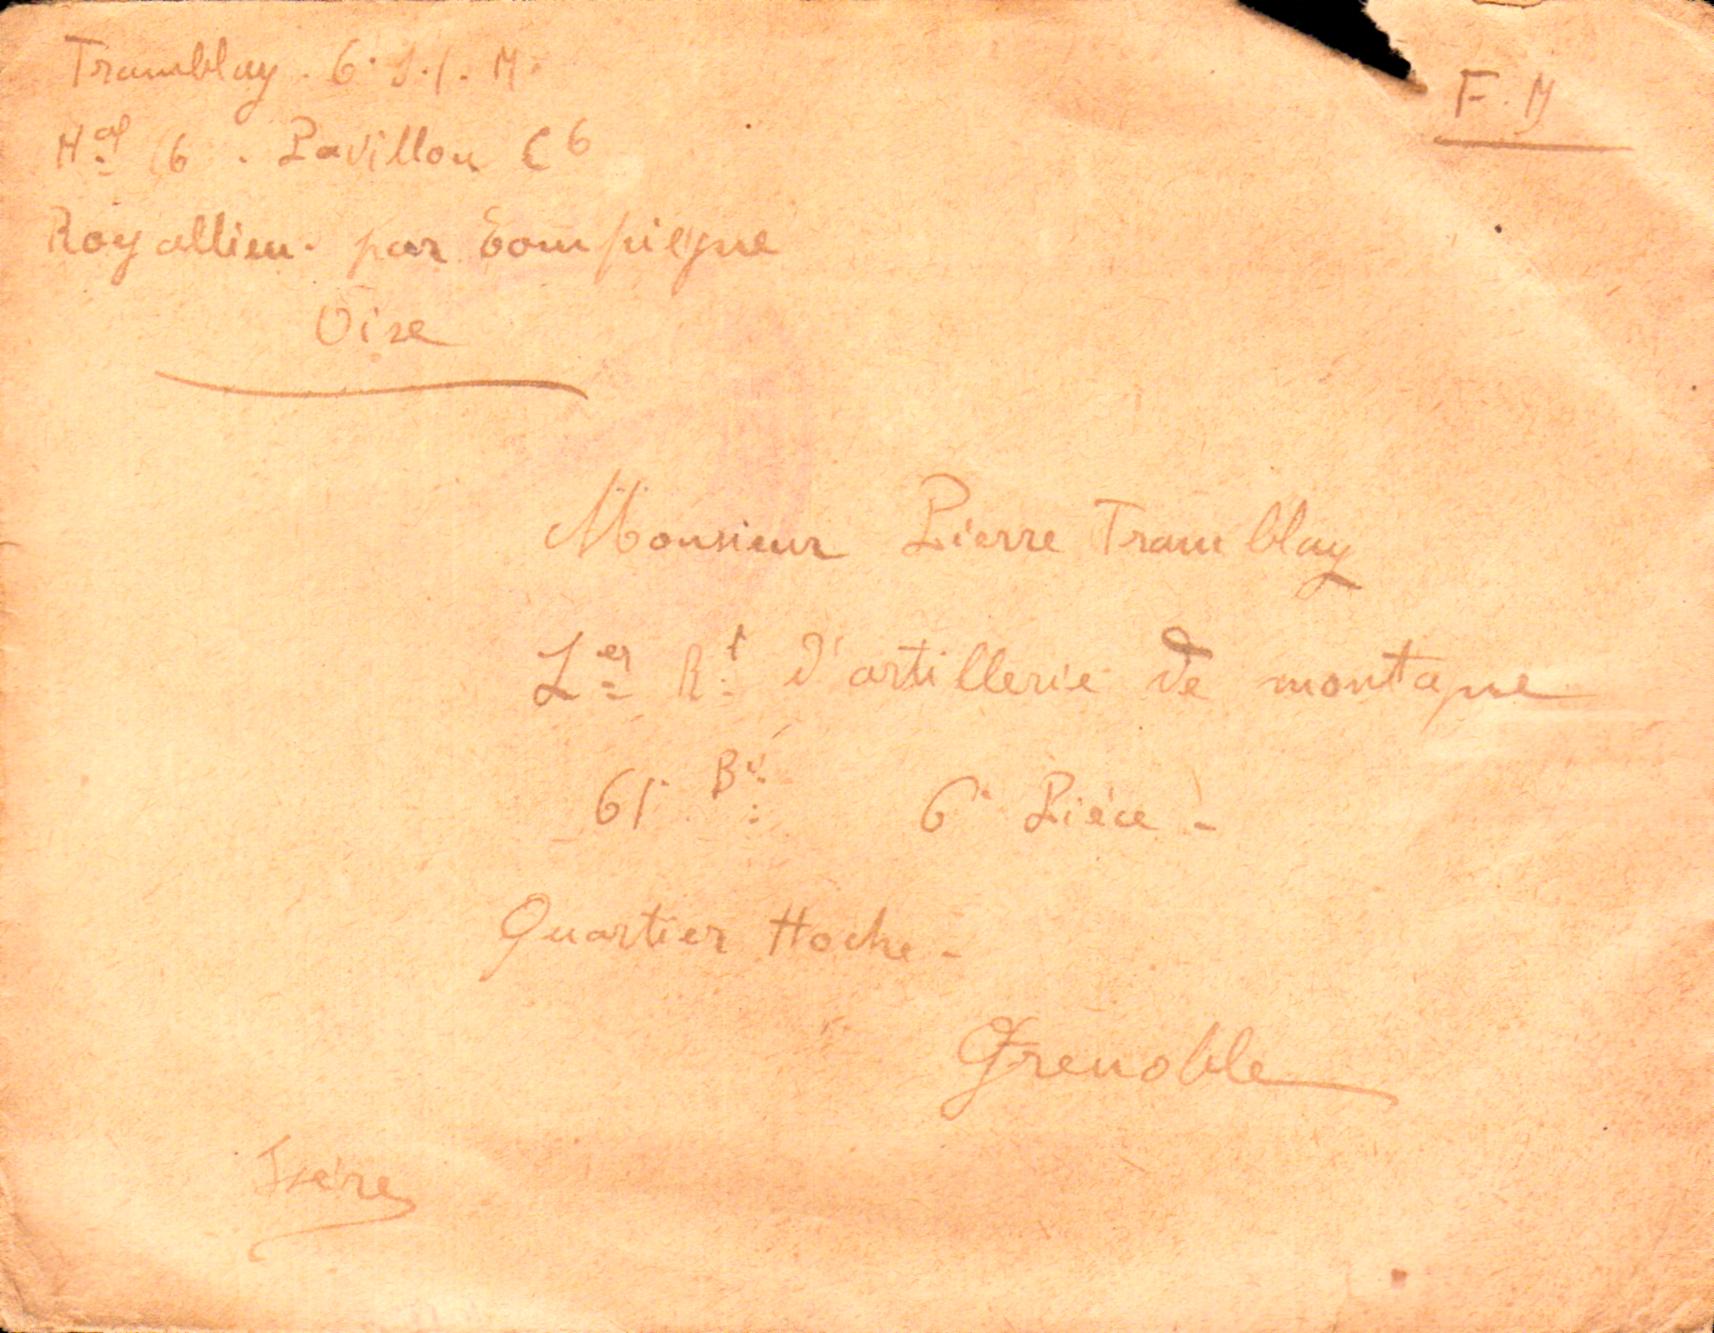 Tramblay. 6e S.I.M.
Hal 16. Pavillon C6
Royallieu. par Compiègne
Oise
F. M
Monsieur Pierre Tramblay
1er Rt d'artillerie de montagne
61e Bie 6e Pièce -
Quartier Hoche -
Grenoble
Isère